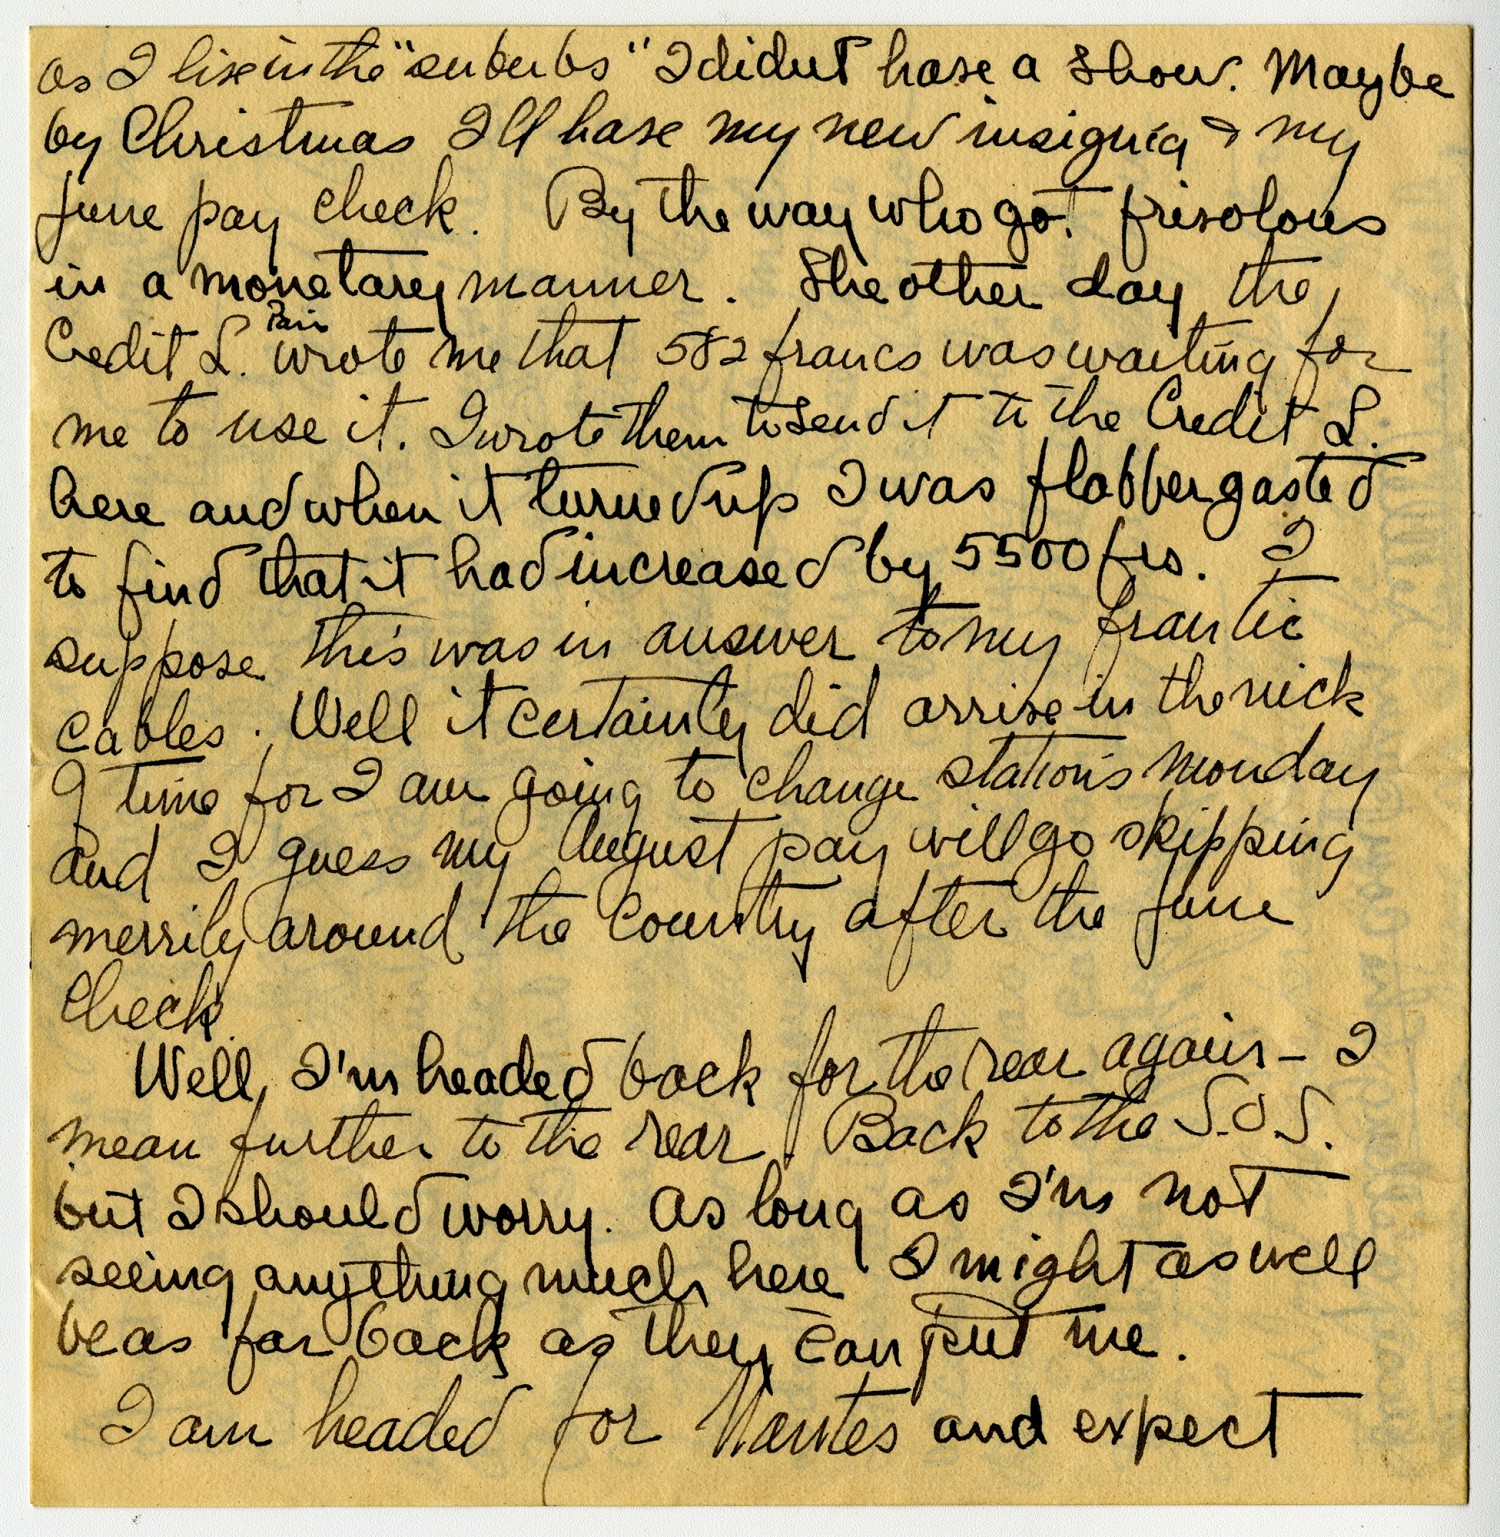 as I live in the "suburbs" I didn't have a show. Maybe
by Christmas I'll have my new insignia & my
June pay check. By the way who got frivolous
in a monetary manner. The other day the
Credit L. Paris wrote me that 582 francs was waiting for
me to use it. I wrote them to send it to the Credit L.
here and when it turned up I was flabbergasted
to find that it had increased by 5500 frs. I
suppose this was in answer to my frantic
cables. Well it certainly did arrive in the nick
of time for I am going to change stations Monday
and I guess my August pay will go skipping
merrily around the country after the June
check.
Well, I'm headed back for the rear again – I
mean further to the rear. Back to the S.O.S.
but I should worry. As long as I'm not
seeing anything much here I might as well
be as far back as they can put me.
I am headed for Nantes and expect